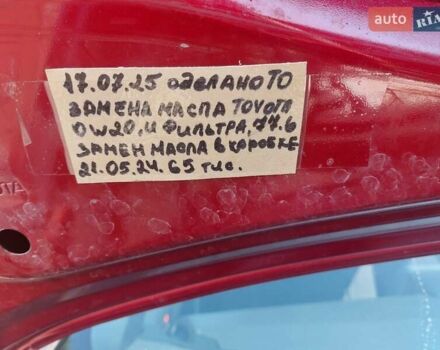 AUTO
RIA
17.07.25 сделано ТО
ЗАМЕНА МАСЛА TOYOTA
0W20, И ФИЛЬТРА, 77.6
ЗАМЕН МАСЛА В КАРОБКЕ
21.05.24. 65 тис.
OTA